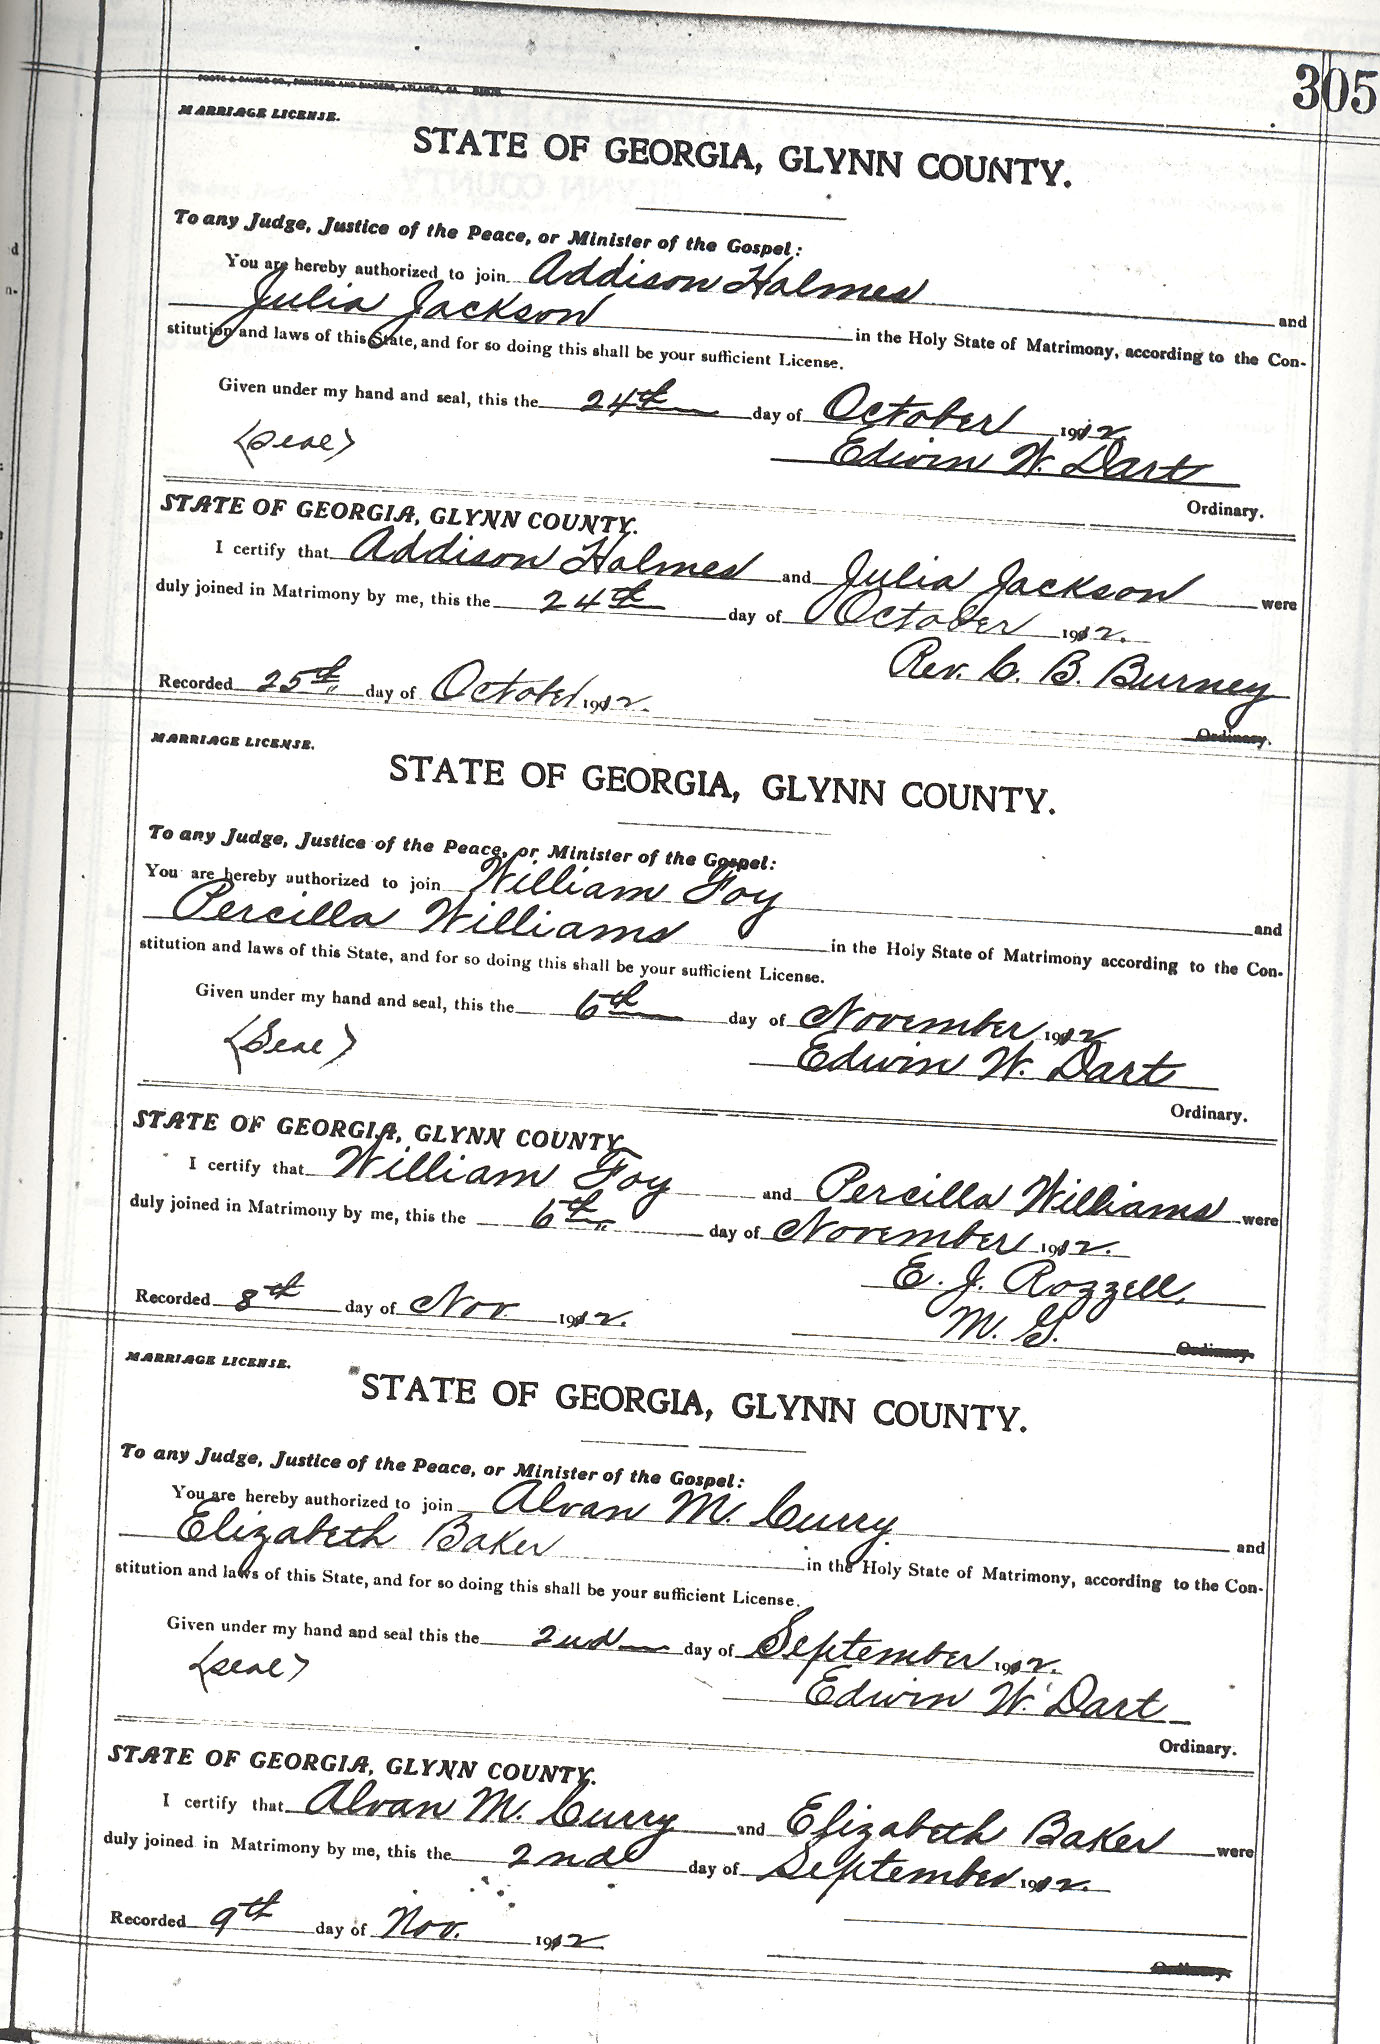 305
FOOTE & DAVIES CO., PRINTERS AND BINDERS, ATLANTA, GA.
MARRIAGE LICENSE.
STATE OF GEORGIA, GLYNN COUNTY.
To any Judge, Justice of the Peace, or Minister of the Gospel:
You are hereby authorized to join Addison Holmes
Julia Jackson and
in the Holy State of Matrimony, according to the Con-
stitution and laws of this State, and for so doing this shall be your sufficient License.
Given under my hand and seal, this the 24th day of October 1912
<seal> Edwin W. Dart
Ordinary.
STATE OF GEORGIA, GLYNN COUNTY.
I certify that Addison Holmes and Julia Jackson were
duly joined in Matrimony by me, this the 24th day of October 1912.
Rev. C. B. Burney
Recorded 25th day of October 1912.
Ordinary.
MARRIAGE LICENSE.
STATE OF GEORGIA, GLYNN COUNTY.
To any Judge, Justice of the Peace, or Minister of the Gospel:
You are hereby authorized to join William Foy
Percilla Williams and
in the Holy State of Matrimony according to the Con-
stitution and laws of this State, and for so doing this shall be your sufficient License.
Given under my hand and seal, this the 6th day of November 1912
<Seal> Edwin W. Dart
Ordinary.
STATE OF GEORGIA, GLYNN COUNTY.
I certify that William Foy and Percilla Williams were
duly joined in Matrimony by me, this the 6th day of November 1912.
E. J. Rozzell,
Recorded 8th day of Nov. 1912.
M. G.
Ordinary.
MARRIAGE LICENSE.
STATE OF GEORGIA, GLYNN COUNTY.
To any Judge, Justice of the Peace, or Minister of the Gospel:
You are hereby authorized to join Alvan M. Curry
Elizabeth Baker and
in the Holy State of Matrimony, according to the Con-
stitution and laws of this State, and for so doing this shall be your sufficient License.
Given under my hand and seal this the 2nd day of September 1912.
<seal> Edwin W. Dart
Ordinary.
STATE OF GEORGIA, GLYNN COUNTY.
I certify that Alvan M. Curry and Elizabeth Baker were
duly joined in Matrimony by me, this the 2nd day of September 1912.
Recorded 9th day of Nov. 1912
Ordinary.